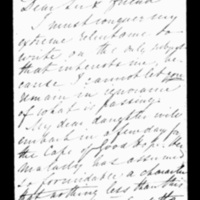 Dear Sir & Friend
I must conquer my
extreme reluctance to
write on the only subject
that interests me, be
cause I cannot let you
remain in ignorance
of what is passing.
My dear daughter will
embark in a few days for
the Cape of Good Hope. Her
malady has assumed
so formidable a character
that nothing less than this